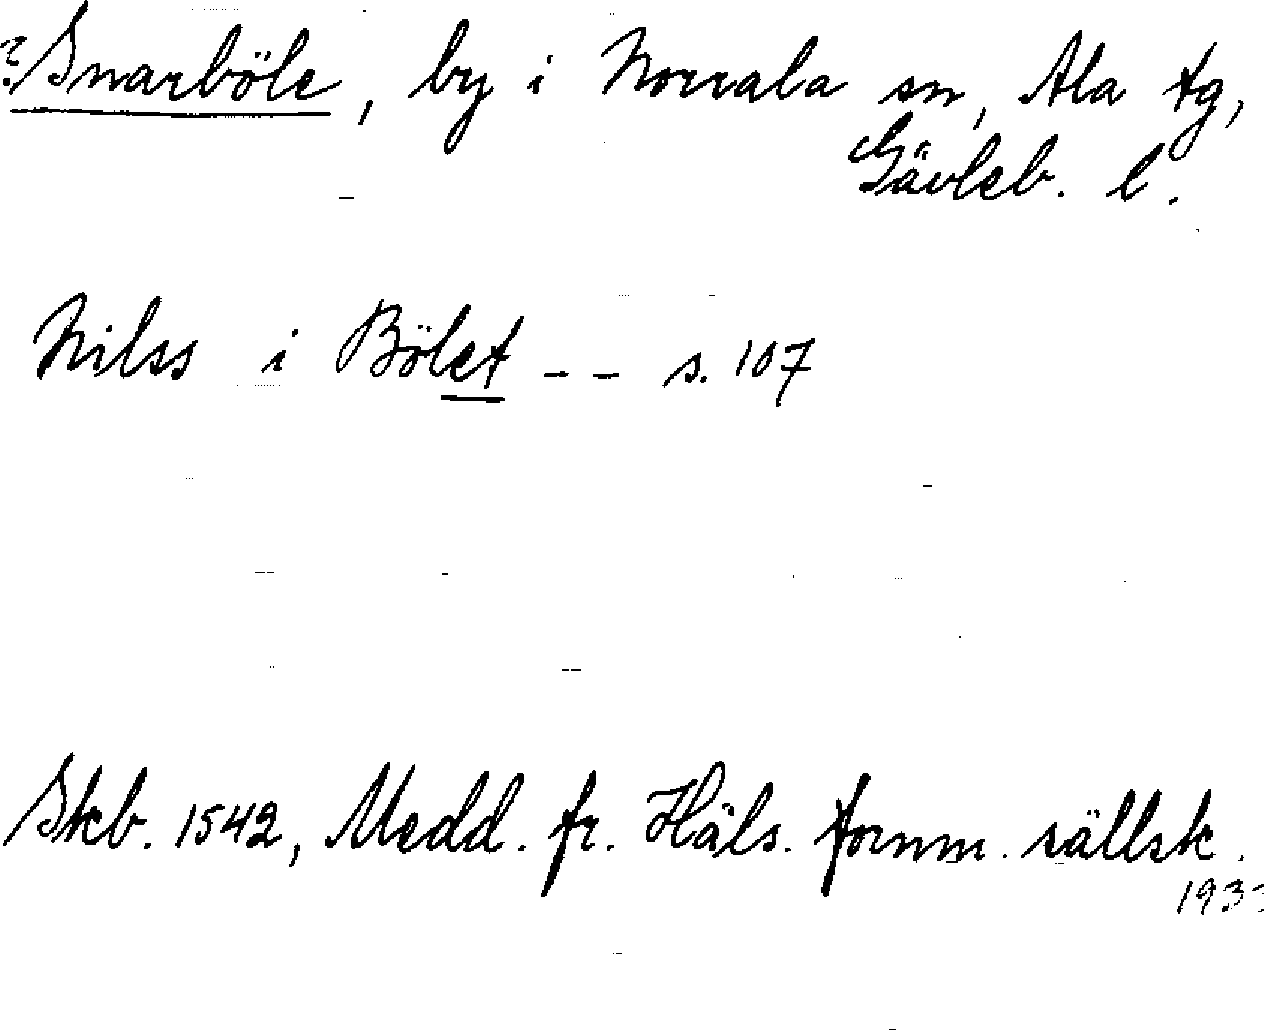 ? Snarböle, by i Norrala sn, Ala tg,
Gävleb. l.
Nilss i Bölet -- s. 107
Skb. 1542, Medd. fr. Häls. fornm. sällsk.
1933